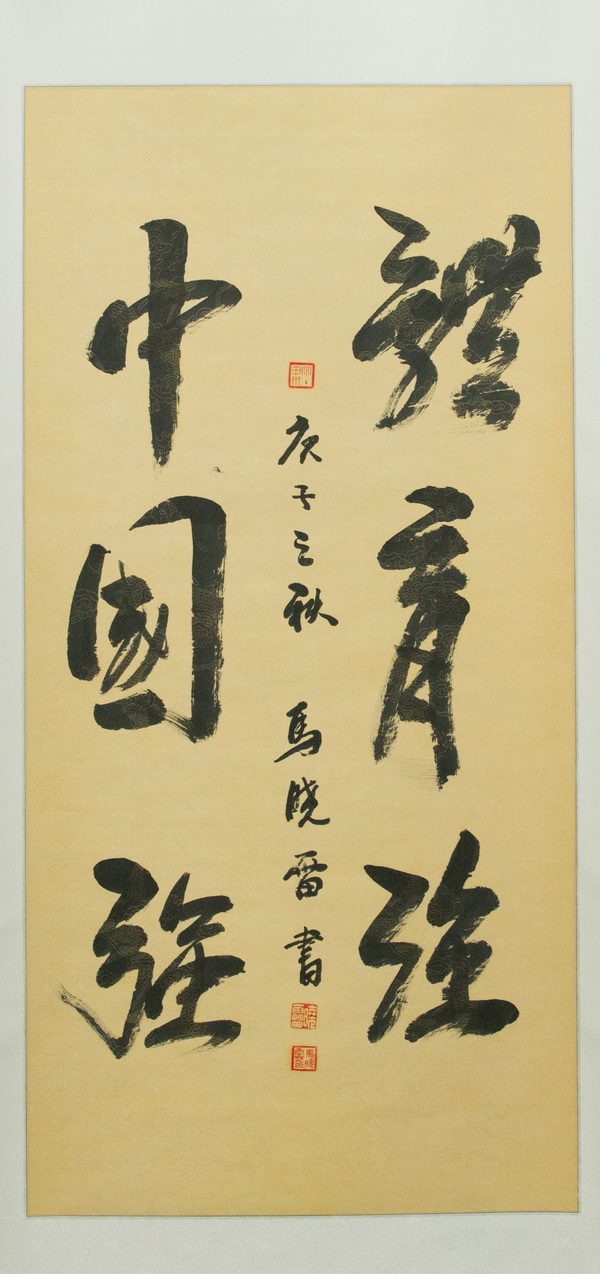 體育强
中國强
庚子之秋 馬曉雷書